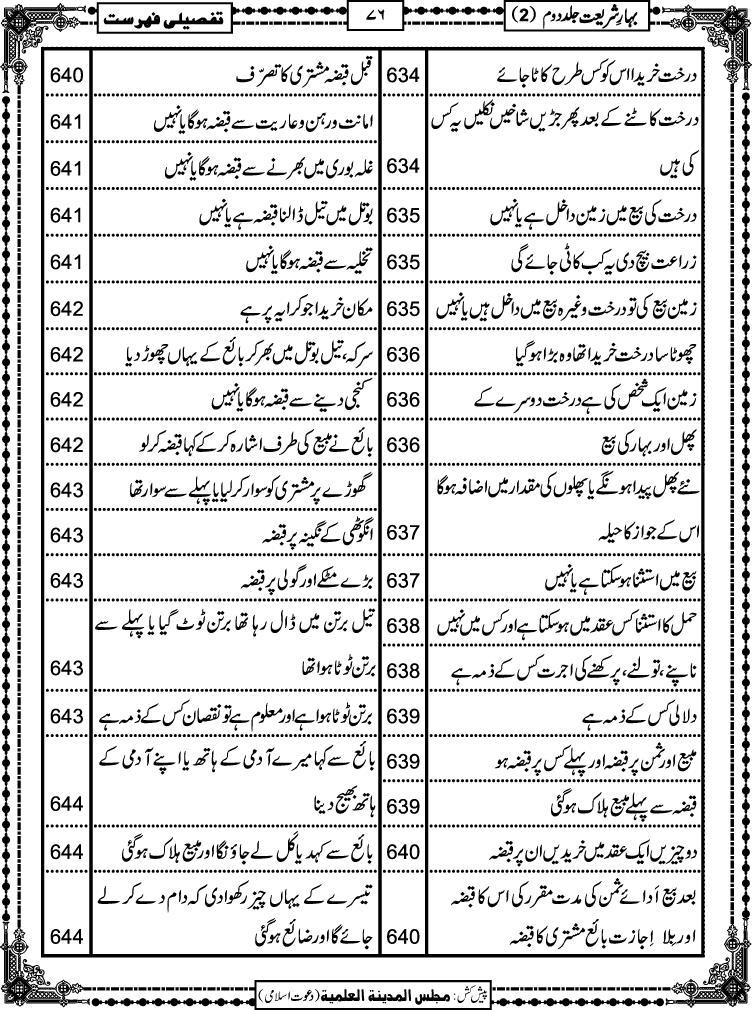 بہارِشریعت جلد دوم (2)
۷٦
تفصیلی فہرست
درخت خریدا اس کو کس طرح کاٹا جائے 634
درخت کاٹنے کے بعد پھر جڑیں شاخیں نکلیں یہ کس
کی ہیں 634
درخت کی بیع میں زمین داخل ہے یا نہیں 635
زراعت بیچ دی یہ کب کاٹی جائے گی 635
زمین بیع کی تو درخت وغیرہ بیع میں داخل ہیں یا نہیں 635
چھوٹا سا درخت خریدا تھا وہ بڑا ہوگیا 636
زمین ایک شخص کی ہے درخت دوسرے کے 636
پھل اور بہار کی بیع 636
نئے پھل پیدا ہونگے یا پھلوں کی مقدار میں اضافہ ہوگا
اس کے جواز کا حیلہ 637
بیع میں استثنا ہوسکتا ہے یا نہیں 637
حمل کا استثنا کس عقد میں ہوسکتا ہے اور کس میں نہیں 638
ناپنے، تولنے، پرکھنے کی اجرت کس کے ذمہ ہے 638
دلالی کس کے ذمہ ہے 639
مبیع اور ثمن پر قبضہ اور پہلے کس پر قبضہ ہو 639
قبضہ سے پہلے مبیع ہلاک ہوگئی 639
دو چیزیں ایک عقد میں خریدیں ان پر قبضہ 640
بعد بیع اَدائے ثمن کی مدت مقرر کی اس کا قبضہ
اور بِلا اِجازت بائع مشتری کا قبضہ 640
قبل قبضہ مشتری کا تصرّف 640
امانت و رہن و عاریت سے قبضہ ہوگا یا نہیں 641
غلہ بوری میں بھرنے سے قبضہ ہوگا یا نہیں 641
بوتل میں تیل ڈالنا قبضہ ہے یا نہیں 641
تخلیہ سے قبضہ ہوگا یا نہیں 641
مکان خریدا جو کرایہ پر ہے 642
سرکہ، تیل بوتل میں بھر کر بائع کے یہاں چھوڑ دیا 642
کنجی دینے سے قبضہ ہوگا یا نہیں 642
بائع نے مبیع کی طرف اشارہ کرکے کہا قبضہ کرلو 642
گھوڑے پر مشتری کو سوار کرلیا یا پہلے سے سوار تھا 643
انگوٹھی کے نگینہ پر قبضہ 643
بڑے مٹکے اور گولی پر قبضہ 643
تیل برتن میں ڈال رہا تھا برتن ٹوٹ گیا یا پہلے سے
برتن ٹوٹا ہوا تھا 643
برتن ٹوٹا ہوا ہے اور معلوم ہے تو نقصان کس کے ذمہ ہے 643
بائع سے کہا میرے آدمی کے ہاتھ یا اپنے آدمی کے
ہاتھ بھیج دینا 644
بائع سے کہہ دیا کَل لے جاؤنگا اور مبیع ہلاک ہوگئی 644
تیسرے کے یہاں چیز رکھوا دی کہ دام دے کر لے
جائے گا اور ضائع ہوگئی 644
پیش کش: مجلس المدینة العلمیة (دعوت اسلامی)